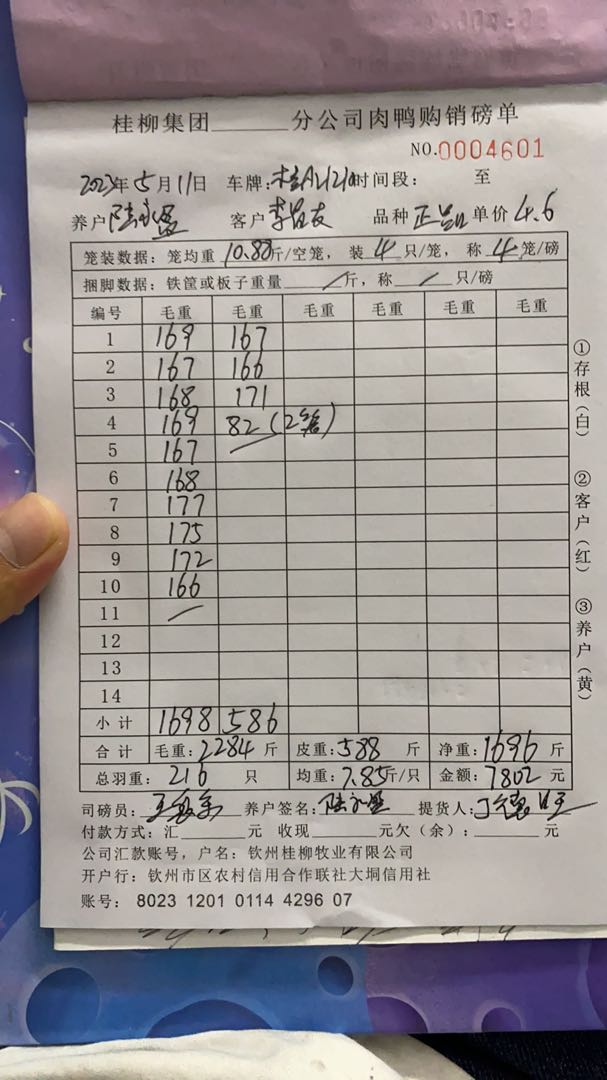 桂柳集团______分公司肉鸭购销磅单
NO.0004601
2023年5月11日 车牌:桂A2121a时间段: 至
养户 客户 品种 单价4.6
笼装数据:笼均重10.88斤/空笼,装4只/笼,称4笼/磅
捆脚数据:铁筐或板子重量/斤,称/只/磅
编号 毛重 毛重 毛重 毛重 毛重 毛重
1 169 167
2 167 166
3 168 171
4 169 82(2笼)
5 167
6 168
7 177
8 175
9 172
10 166
11
12
13
14
小计 1698 586
合计 毛重:2284斤 皮重:588斤 净重:1696斤
总羽重:216只 均重:7.85斤/只 金额:7802元
司磅员: 养户签名: 提货人:
付款方式:汇______元 收现______元欠(余):______元
公司汇款账号,户名:钦州桂柳牧业有限公司
开户行:钦州市区农村信用合作联社大垌信用社
账号:8023 1201 0114 4296 07
①存根(白)
②客户(红)
③养户(黄)